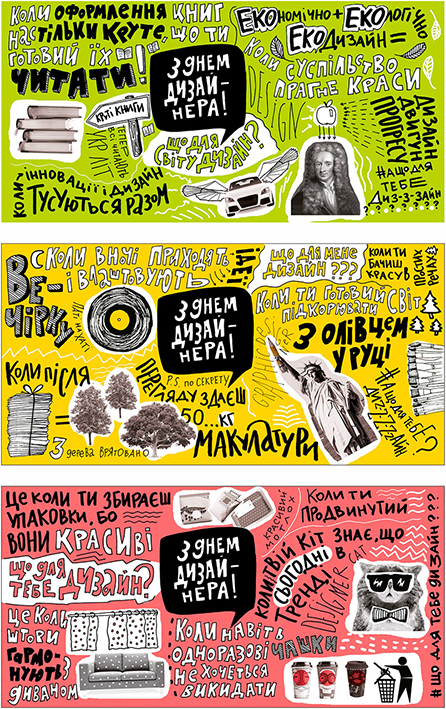 КОЛИ ОФОРМЛЕННЯ КНИГ
НАСТІЛЬКИ КРУТЕ, ЩО ТИ
ГОТОВИЙ ЇХ
ЧИТАТИ!
КРУТІ КНИГИ
ТЕПЕР
ВСІ ЧИТАЮТЬ
УКР ЛІТ
КОЛИ ІННОВАЦІЇ І ДИЗАЙН
ТУСУЮТЬСЯ РАЗОМ
З ДНЕМ
ДИЗАЙ-
НЕРА!
ЩО ДЛЯ
СВІТУ ДИЗАЙН?
ЕКОНОМІЧНО + ЕКОЛОГІЧНО
ЕКОДИЗАЙН =
КОЛИ СУСПІЛЬСТВО
ПРАГНЕ КРАСИ
DESIGN
ДИЗАЙН
ДВИГУН
ПРОГРЕСУ
#ЩО ДЛЯ
ТЕБЕ
ДИЗ-З-ЗАЙН
СКОЛИ ВНОЧІ ПРИХОДЯТЬ ІДЕЇ
І ВЛАШТОВУЮТЬ
ВЕ-
ЧІРКУ
КОЛИ ПІСЛЯ
ПЕРЕГЛЯДУ ЗДАЄШ
P.S. ПО СЕКРЕТУ
50...КГ
МАКУЛАТУРИ
=
3 ДЕРЕВА ВРЯТОВАНО
З ДНЕМ
ДИЗАЙ-
НЕРА!
ЩО ДЛЯ МЕНЕ
ДИЗАЙН ???
КОЛИ ТИ
БАЧИШ
КРАСУ В
КОЛИ ТИ ГОТОВИЙ СВІТ
ПІДКОРЮВАТИ
З ОЛІВЦЕМ
У РУЦІ
#ЩО ДЛЯ ТЕБЕ?
ЦЕ КОЛИ ТИ ЗБИРАЄШ
УПАКОВКИ, БО
ВОНИ КРАСИВІ
ЩО ДЛЯ
ТЕБЕ ДИЗАЙН?
ЦЕ КОЛИ
ШТОРИ
ГАРМО-
НУЮТЬ З
ДИВАНОМ
З ДНЕМ
ДИЗАЙ-
НЕРА!
КРАСИВИЙ
МОТЛОХ
КОЛИ ТИ
ПРОДВИНУТИЙ
КОЛИ ТВІЙ КІТ ЗНАЄ, ЩО
СЬОГОДНІ В
ТРЕНДІ
DESIGNER CAT
КОЛИ НАВІТЬ
ОДНОРАЗОВІ ЧАШКИ
НЕ ХОЧЕТЬСЯ
ВИКИДАТИ
#ЩО ДЛЯ ТЕБЕ ДИЗАЙН???